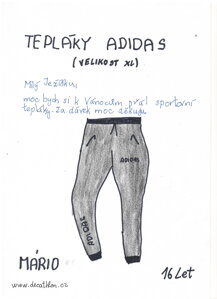 TEPLÁKY ADIDAS
(VELIKOST XL)
Milý Ježíšku,
moc bych si k Vánocům přál sportovní
tepláky. Za dárek moc děkuju.
ADIDAS
ADIDAS
MÁRIO
16 Let
www.decathlon.cz